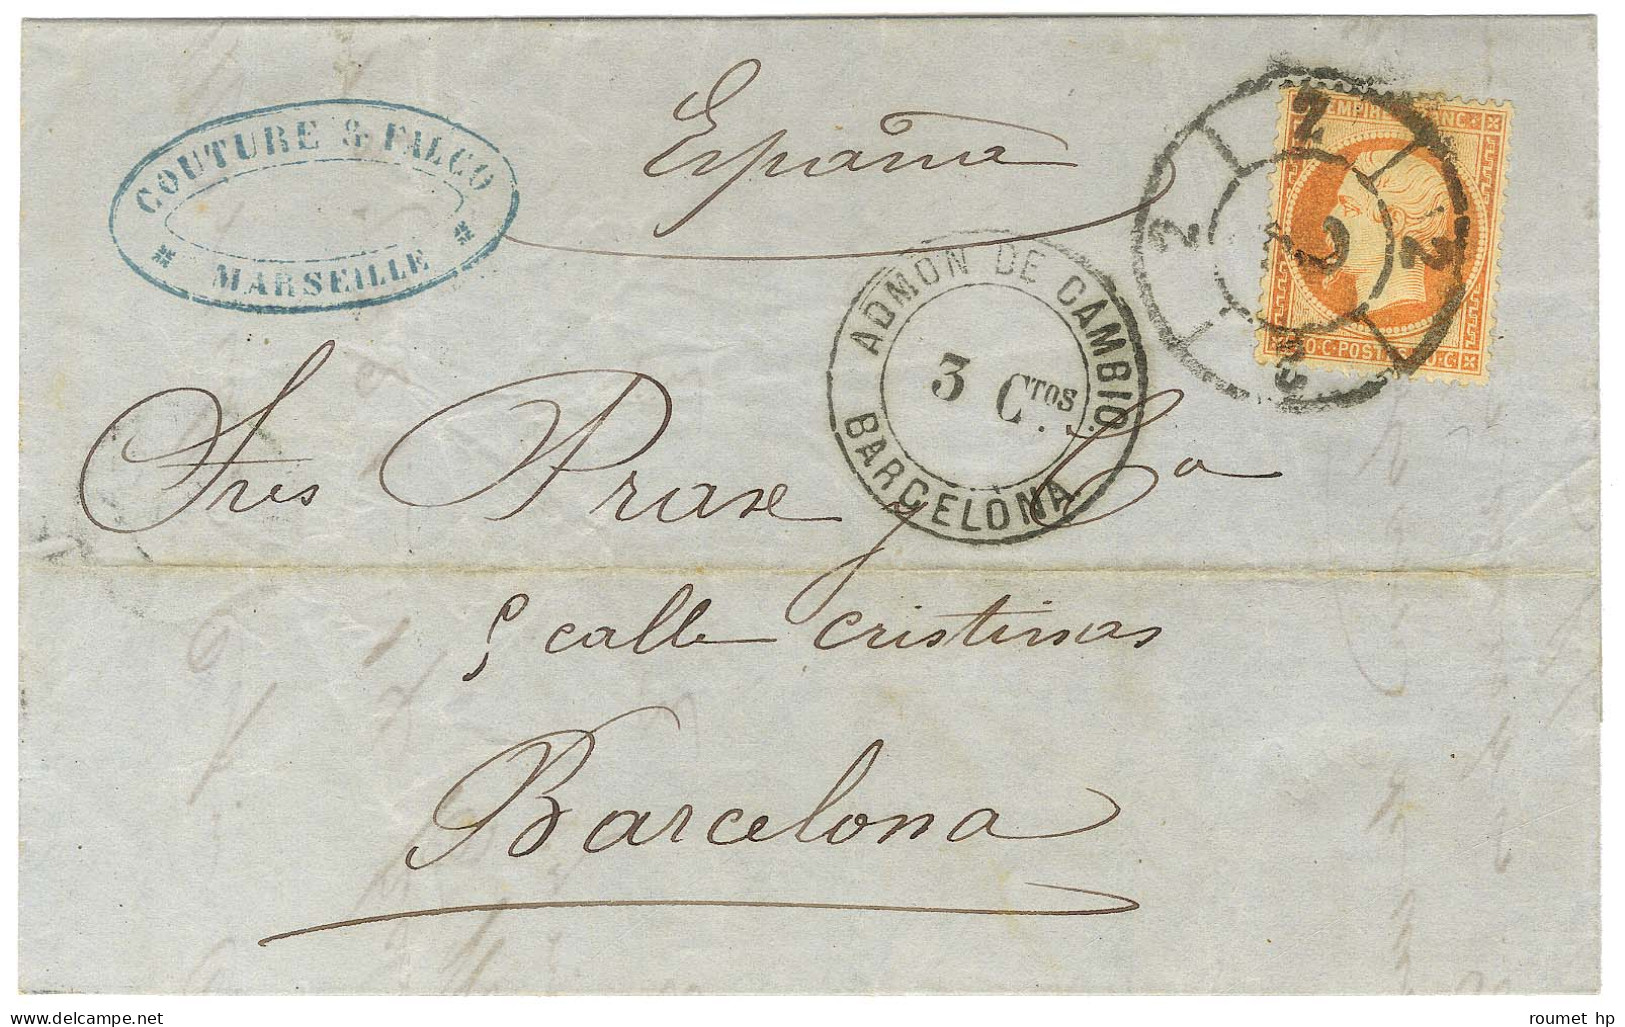 COUTURE & FALCO
MARSEILLE
España
EMPIRE FRANC
40·C·POSTES·40·C
2 2 2 2 2
ADMON DE CAMBIO.
3 Ctos.
BARCELONA
Sres Prax y Ca
calle cristinas
Barcelona
roumet hp
delcampe.net